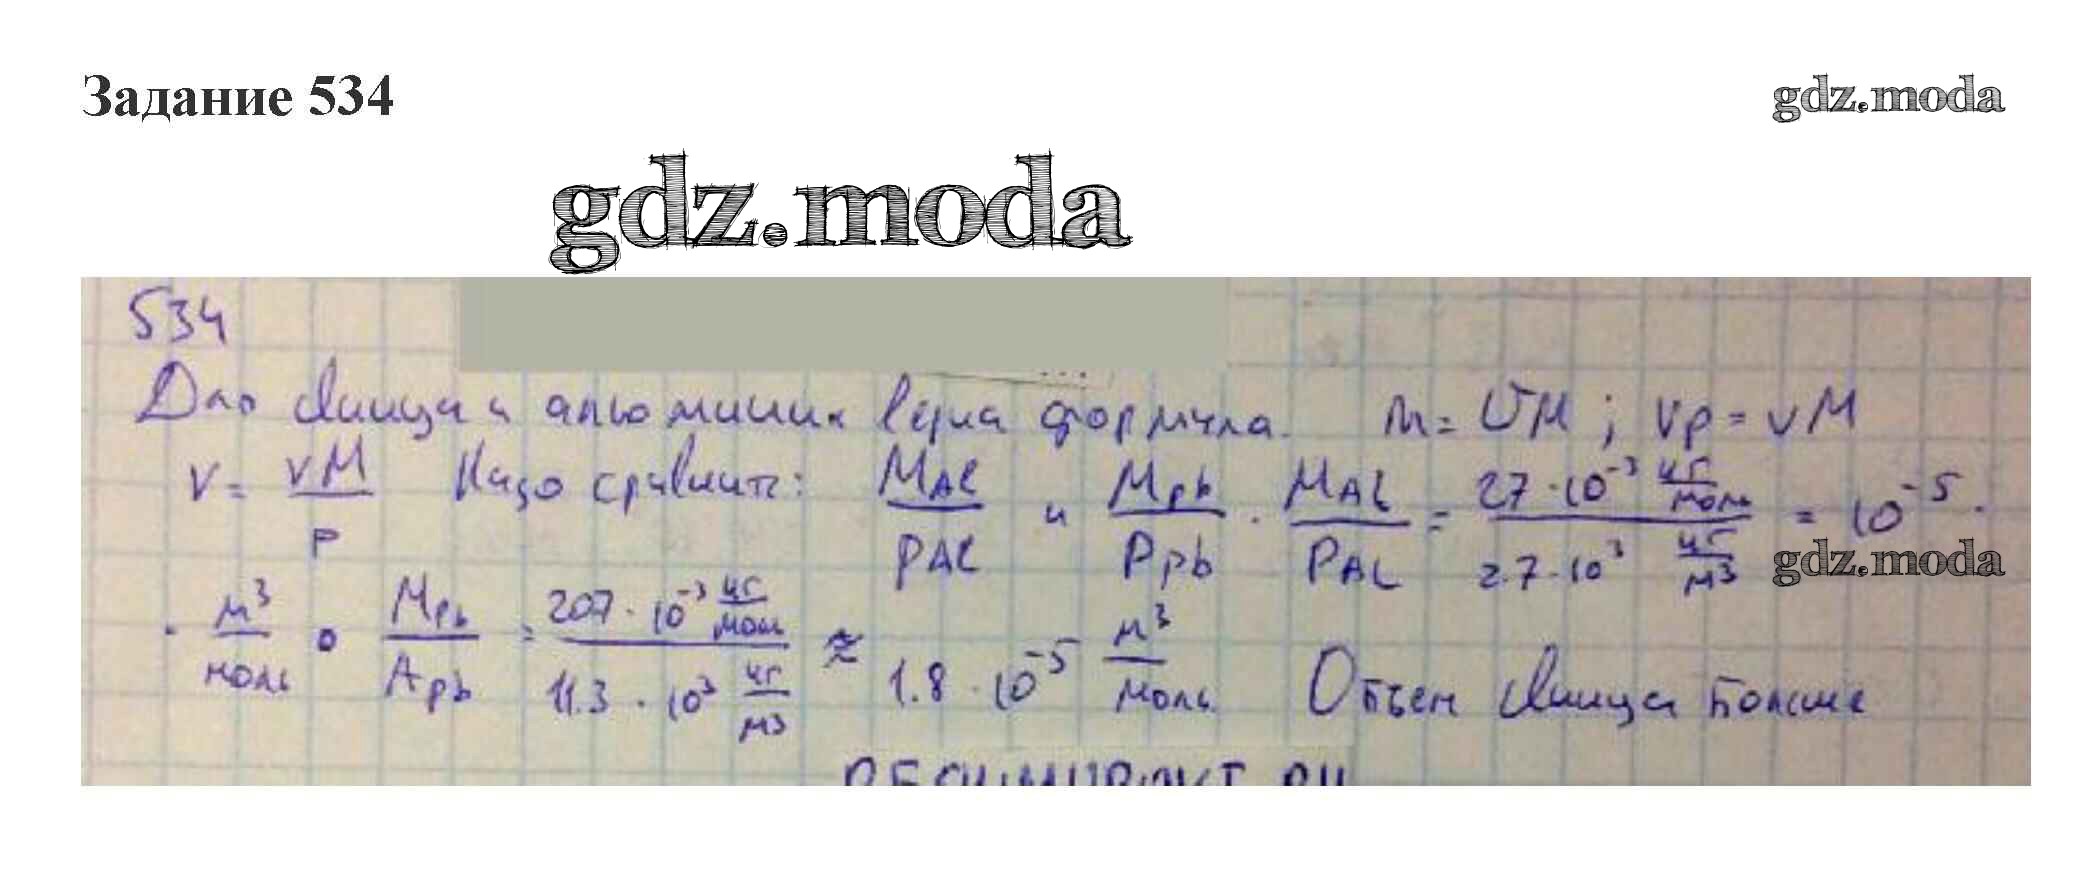 Задание 534
gdz.moda
gdz.moda
534
Для свинца и алюминия верна формула. m = νM ; Vρ = νM
V = νM/ρ Надо сравнить: M_Al/ρ_Al и M_Pb/ρ_Pb . M_Al/ρ_Al = 27·10⁻³ кг/моль / 2.7·10³ кг/м³ = 10⁻⁵ ·
gdz.moda
· м³/моль • M_Pb/A_Pb = 207·10⁻³ кг/моль / 11.3·10³ кг/м³ ≈ 1.8·10⁻⁵ м³/моль Объем свинца больше